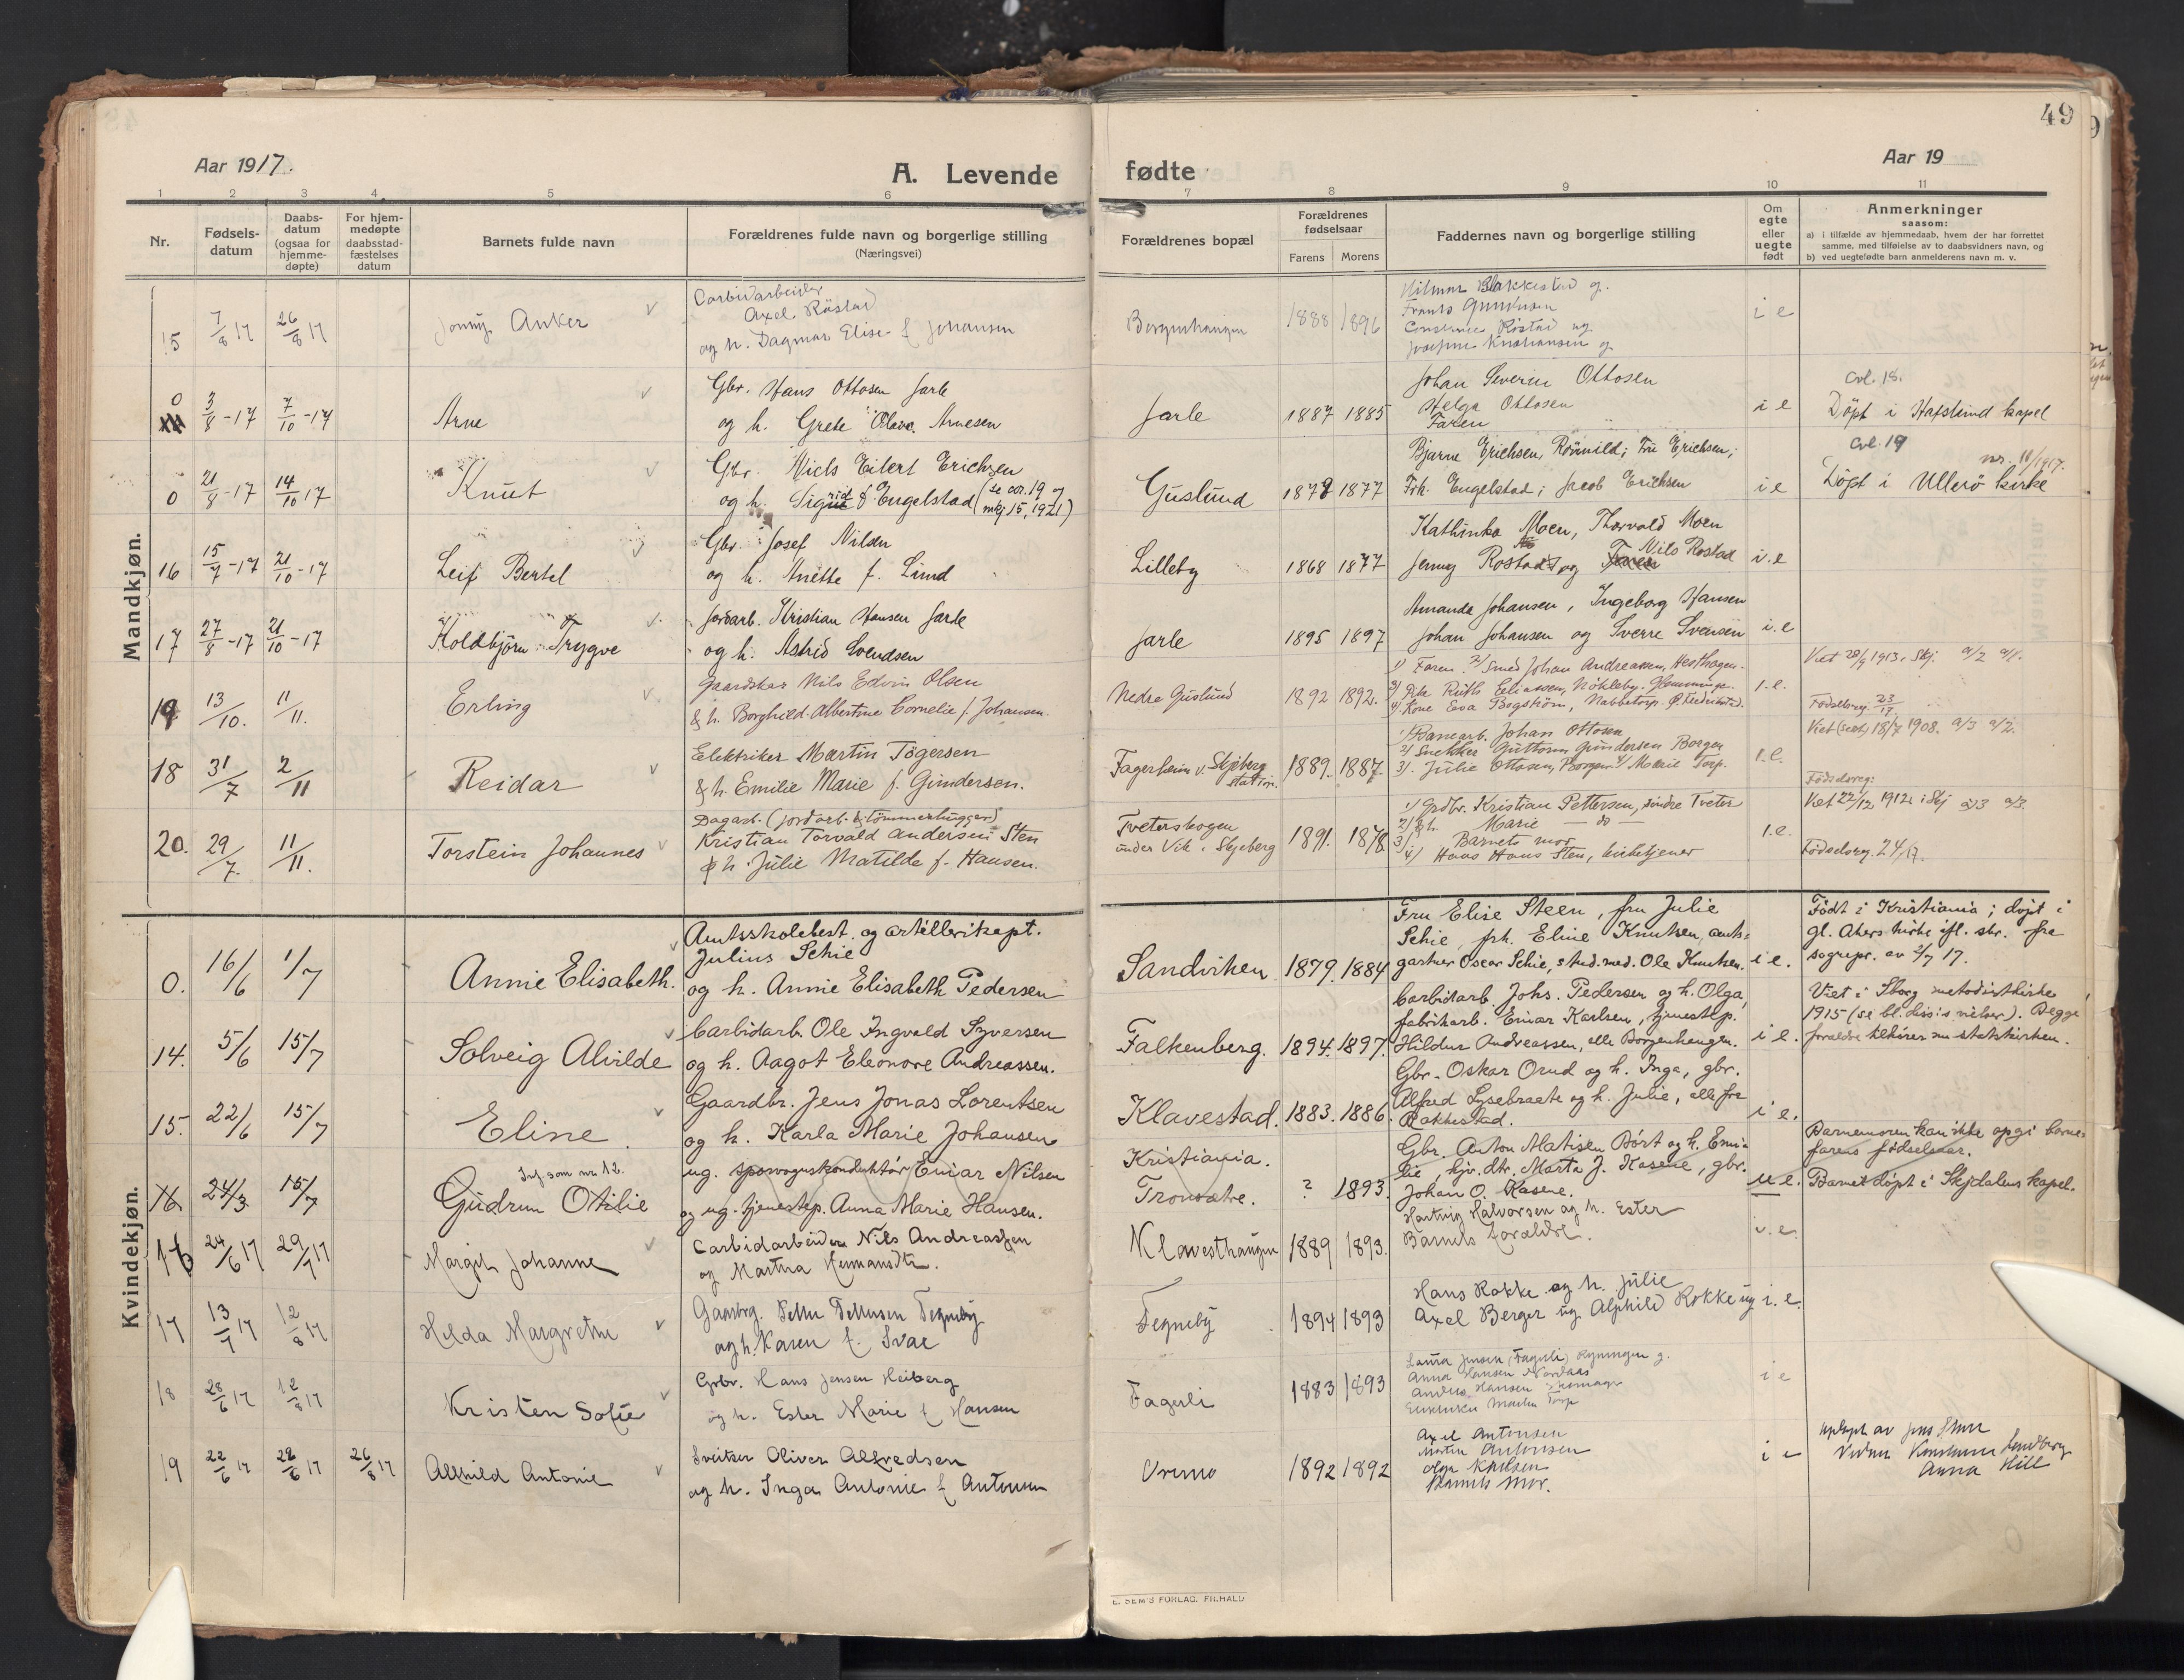 49
Aar 1917.
A. Levende fødte
Aar 19
1 2 3 4 5 6 7 8 9 10 11
Nr.
Fødsels-datum
Daabs-datum (ogsaa for hjemme-døpte)
For hjem-medøpte daabsstad-fæstelses datum
Barnets fulde navn
Forældrenes fulde navn og borgerlige stilling
(Næringsvei)
Forældrenes bopæl
Forældrenes fødselsaar
Farens Morens
Faddernes navn og borgerlige stilling
Om egte eller uegte født
Anmerkninger
saasom:
a) i tilfælde av hjemmedaab, hvem der har forrettet samme, med tilføielse av to daabsvidners navn, og
b) ved uegtefødte barn anmelderens navn m. v.
Mandkjøn.
15 7/8 17 26/8 17 Jonny Anker
Carbidarbeider
Axel Röstad
og h. Dagmar Elise f Johansen
Borgenhaugen 1888 1896
Constance Röstad ug
i e
0 3/8-17 7/10-17 Arne
Gbr. Hans Ottosen Jarle
og h. Grete Olava Arnesen
Jarle 1887 1885
Johan Severin Ottosen
Helga Ottosen
Faren
i e
Cvl. 18.
Döpt i Hafslund kapel
0 21/8-17 14/10 17 Knut
Gbr. Niels Eilert Erichsen
og h. Sigrid f. Engelstad (se cor. 19 mkj 15, 1921)
Guslund 1878 1877
Bjarne Erichsen, Rönnild; Fru Erichsen;
Frk. Engelstad; Jacob Erichsen
i e
Cvl. 19
nr. 11/1917.
Döpt i Ullerö kirke
16 15/7-17 21/10-17 Leif Bertel
Gbr. Josef Nilsen
og h. Anette f. Lund
Lilleby 1868 1877
Kathinka Moen, Thorvald Moen
Jenny Rostad og Nils Rostad
i.e
17 27/8-17 21/10-17 Koldbjörn Trygve
Jordarb. Kristian Hansen Jarle
og h. Astrid Svendsen
Jarle 1895 1897
Amanda Johansen, Ingeborg Hansen
Johan Johansen og Sverre Svensen
i.e
19 13/10. 11/11. Erling
Gaardskar Nils Edvin Olsen
& h. Borghild Albertine Cornelie f. Johansen.
Nedre Guslund 1892 1892.
1) Faren 2) Smed Johan Andreassen, Hesthagen.
3) Pike Ruth Eliassen, Nökleby. Glemminge.
4) Kone Eva Bogström, Nabbetorp. Ø. Fredrikstad.
i.e.
Viet 28/9 1913 i Skj. a/2 a/1.
Fødselsreg. 23/17
18 31/7 2/11 Reidar
Elektriker Martin Tögersen
& h. Emilie Marie f. Gundersen.
Fagerheim v. Skjeberg station. 1889. 1887.
1) Banearb. Johan Ottosen
2) Snekker Guttorm Gundersen Borgen
3). Julie Ottosen, Borgen 4) Marie Torp.
i.e.
Viet (seet) 18/7 1908. a/3 a/2.
Fødselsreg:
20. 29/7. 11/11. Torstein Johannes
Dagarb. (jordarb. & tömmerhugger)
Kristian Torvald Andersen Sten
& h. Julie Matilde f. Hansen.
Tveterskogen under Vik i Skjeberg 1891. 1878
1) Grdbr. Kristian Pettersen, søndre Tveter
2) & h. Marie — do —
3) Barnets mor
4) Hans Hans Sten, kirketjener
i.e.
Viet 22/12 1912 i Skj a/3 a/3.
Fødselsreg. 24/17.
Kvindekjøn.
0. 16/6 1/7 Annie Elisabeth.
Amtsskolebest. og artillerikapt.
Julius Schie
og h. Annie Elisabeth Pedersen
Sandviken 1879. 1884
Fru Elise Steen, fru Julie
Schie, frk. Eline Knutsen, amts-
gartner Oscar Schie, stud. med. Ole Knutsen.
i e.
Født i Kristiania; døpt i
Gl. Akers kirke ifl. skr. fra
sognepr. av 2/7 17.
14. 5/6 15/7 Solveig Alvilde
Carbidarb. Ole Ingvald Syversen
og h. Aagot Eleonore Andreassen.
Falkenberg. 1894. 1897.
Carbidarb. Johs. Pedersen og h. Olga,
fabrikarb. Einar Karlsen, tjenestep.
Hildur Andreassen, alle Borgenhaugen.
i e.
Viet i Sborg metodistkirke
1915 (se bl. dissis vielser). Begge
foreldre tilhører nu statskirken.
15. 22/6 15/7 Eline.
Gaardbr. Jens Jonas Lorentsen
og h. Karla Marie Johansen
Klavestad. 1883. 1886.
Gbr. Oskar Orud og h. Inga, gbr.
Alfred Lysebraate og h. Julie, alle fra
Rakkestad.
i e.
16. 24/3 15/7 Inf. som nr. 12.
Gudrun Otilie
ug. sporvognskonduktör Einar Nilsen
og ug. tjenestep. Anna Marie Hansen.
Kristiania.
Tronsætre. ? 1893.
Gbr. Anton Matisen Bört og h. Emi-
lie, gbr. dtr. Marta J. Kasene, gbr.
Johan O. Kasene.
u e.
Barnemoren kan ikke opgi barne-
farens fødselsaar.
Barnet døpt i Skjdalens kapel.
16 24/6 17 29/7 17 Margit Johanne
Carbidarbeider Nils Andreassen
og Martha Hermansdtr.
Klavesthaugen 1889 1893.
Hartvig Halvorsen og h. Ester
Barnets foraldre.
i.e.
17 13/7 17 12/8 17 Hilda Margrethe
Gaardbrg. Petter Pettersen Tegneby
og h. Karen f. Svae
Tegneby 1894 1893
Hans Rokke og h. Julie
Axel Berger ug Alphild Rokke ug
i.e.
18 28/6 17 12/8 17 Kristen Sofie
Grbr. Hans Jensen Heiberg
og h. Ester Marie f Hansen
Fagerli 1883 1893
Laura Jensen (Fagerli) Ryningen g.
Anna Hansen Nordaas
Andreas Hansen
Martin Torp
i e
19 22/6 17 28/6 17 26/8 17 Alfhild Antonie
Sveitser Oliver Alfredsen
og h. Inga Antonie f Antonsen
Oremo 1892 1892
Axel Antonsen
Martin Antonsen
Olga Karlsen
Barnets mor.
i e
Anna Hill
E. SEM'S FORLAG, FR.HALD